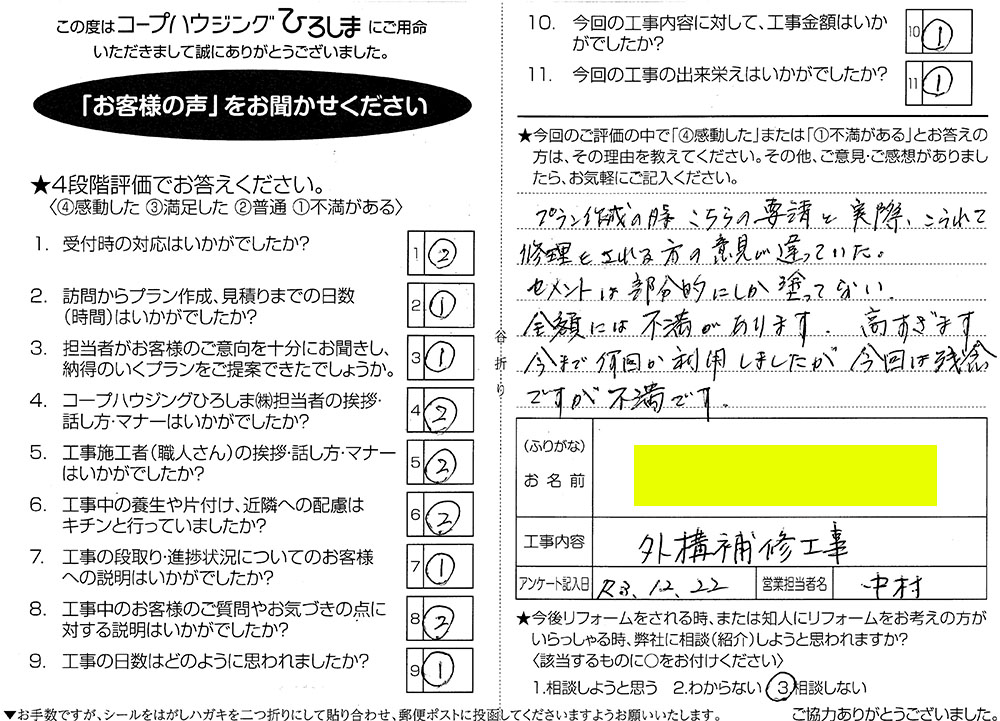 この度はコープハウジングひろしまにご用命
いただきまして誠にありがとうございました。
「お客様の声」をお聞かせください
★4段階評価でお答えください。
〈④感動した ③満足した ②普通 ①不満がある〉
1. 受付時の対応はいかがでしたか?
1 ②
2. 訪問からプラン作成、見積りまでの日数
(時間)はいかがでしたか?
2 ①
3. 担当者がお客様のご意向を十分にお聞きし、
納得のいくプランをご提案できたでしょうか。
3 ①
4. コープハウジングひろしま㈱担当者の挨拶・
話し方・マナーはいかがでしたか?
4 ②
5. 工事施工者(職人さん)の挨拶・話し方・マナー
はいかがでしたか?
5 ②
6. 工事中の養生や片付け、近隣への配慮は
キチンと行っていましたか?
6 ②
7. 工事の段取り・進捗状況についてのお客様
への説明はいかがでしたか?
7 ①
8. 工事中のお客様のご質問やお気づきの点に
対する説明はいかがでしたか?
8 ②
9. 工事の日数はどのように思われましたか?
9 ①
▼お手数ですが、シールをはがしハガキを二つ折りにして貼り合わせ、郵便ポストに投函してくださいますようお願いいたします。
谷折り
10. 今回の工事内容に対して、工事金額はいか
がでしたか?
10 ①
11. 今回の工事の出来栄えはいかがでしたか?
11 ①
★今回のご評価の中で「④感動した」または「①不満がある」とお答えの
方は、その理由を教えてください。その他、ご意見・ご感想がありまし
たら、お気軽にご記入ください。
プラン作成の時 こちらの要請と 実際、こられて
修理とされる方の意見が違っていた。
セメントは部分的にしか塗ってない.
金額には不満があります. 高すぎます
今まで何回か利用しましたが 今回は残念
ですが不満です.
(ふりがな)
お名前
工事内容 外構補修工事
アンケート記入日 R3.12.22 営業担当者名 中村
★今後リフォームをされる時、または知人にリフォームをお考えの方が
いらっしゃる時、弊社に相談(紹介)しようと思われますか?
〈該当するものに○をお付けください〉
1.相談しようと思う 2.わからない ③相談しない
ご協力ありがとうございました。